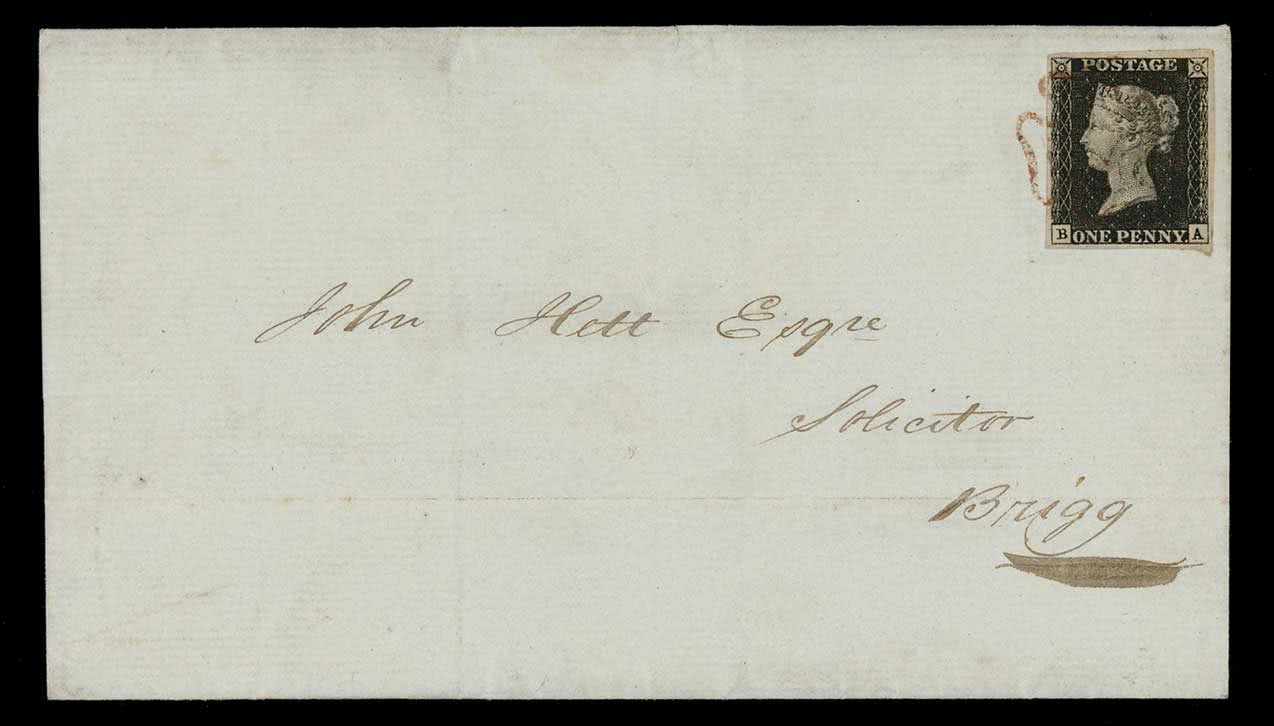 POSTAGE
B ONE PENNY. A
John Hett Esqre
Solicitor
Brigg